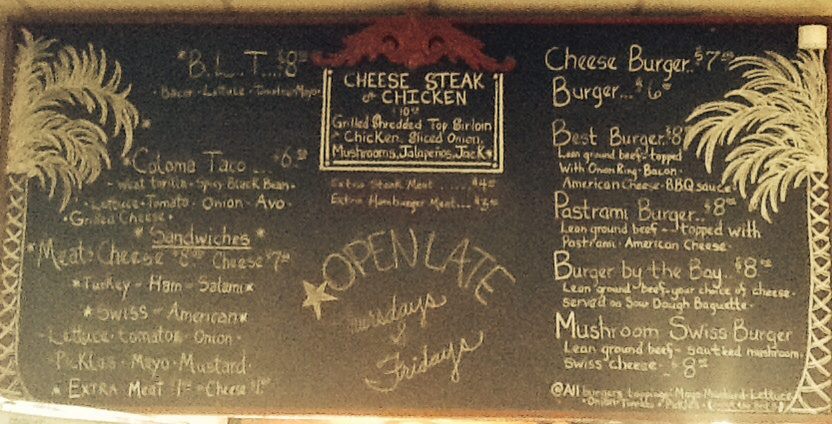 *B.L.T....$8
Bacon - Lettuce - Tomato - Mayo
*Coloma Taco ... $6.50
- wheat tortilla - Spicy Black Bean -
- Lettuce - Tomato - Onion - Avo -
- Grilled Cheese -
* Sandwiches *
*Meat & Cheese $8.00 Cheese $7.50
*Turkey - Ham - Salami*
*Swiss - American*
- Lettuce - tomatoe - Onion -
Pickles - Mayo - Mustard -
* Extra Meat $1.00 - Cheese $1.00
CHEESE STEAK
or CHICKEN
$10
Grilled Shredded Top Sirloin
or Chicken. Sliced Onion,
Mushrooms, Jalapeños, Jack*
Extra Steak Meat ..... $4.00
Extra Hamburger Meat... $3.00
OPEN LATE
Thursdays
&
Fridays
Cheese Burger..$7
Burger...$6
Best Burger.$8
Lean ground beef- topped
With Onion Ring - Bacon -
American Cheese - BBQ sauce.
Pastrami Burger..$8
Lean ground beef - topped with
Pastrami - American Cheese -
Burger by the Bay..$8
Lean ground-beef-your choice of cheese-
served on Sour Dough Baguette-
Mushroom Swiss Burger
Lean ground beef- sauteed mushroom.
swiss cheese - $8
@All burgers toppings: Mayo-Mustard-Lettuce
- Onion - Tomato - Pickles -